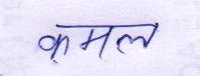 कमल